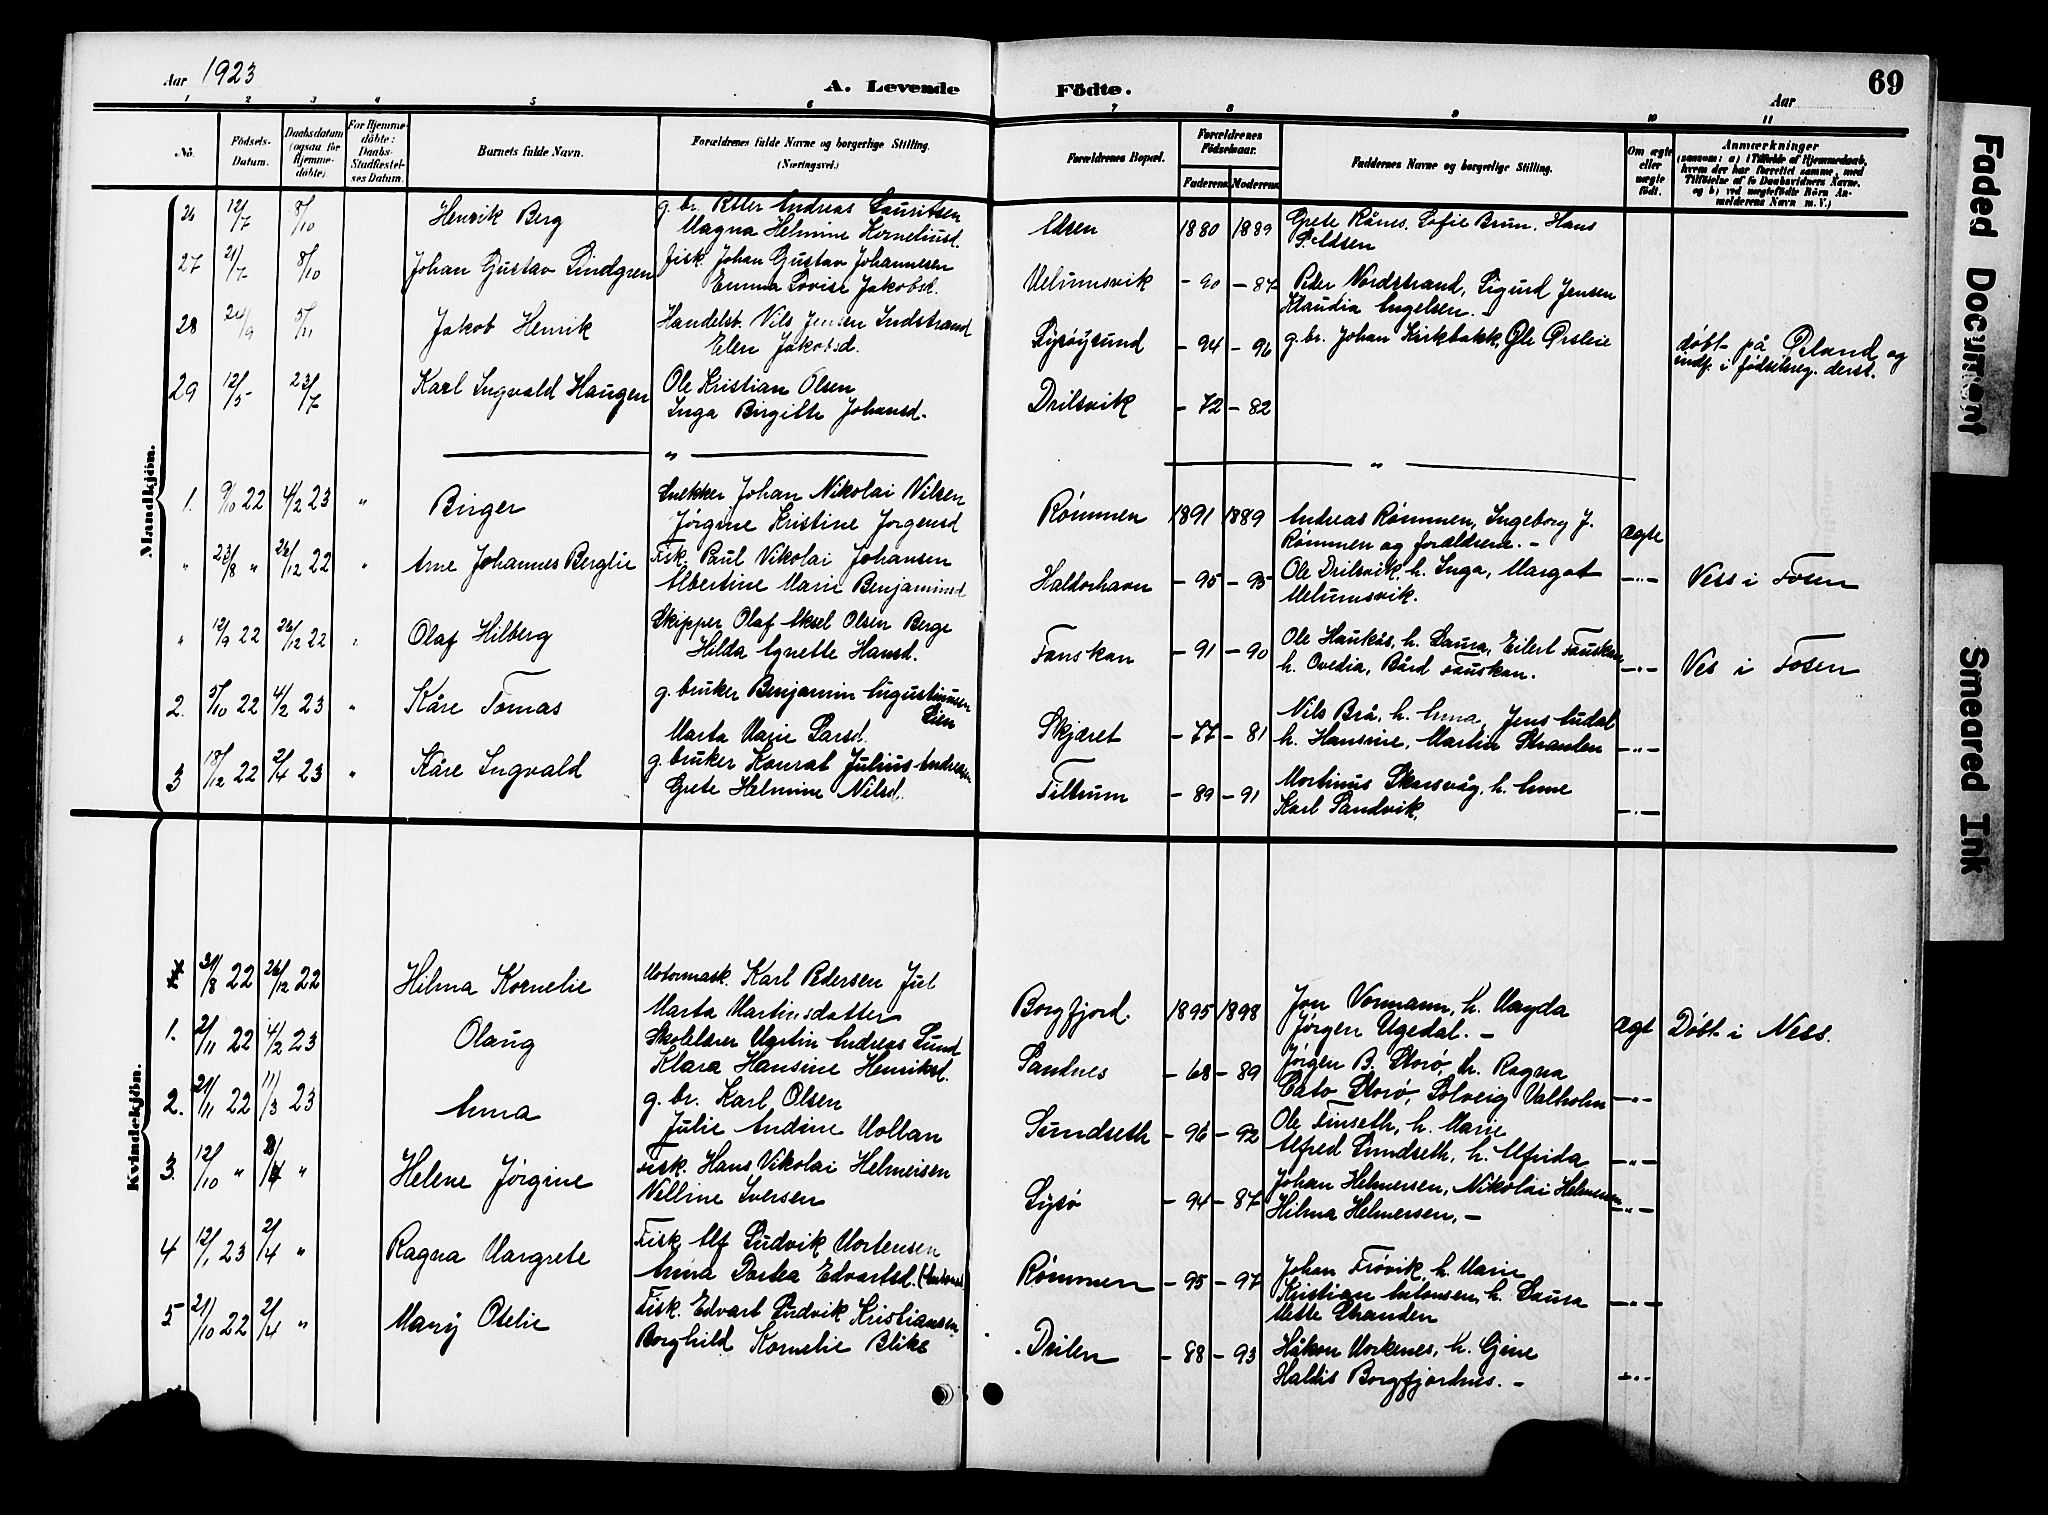 Aar 1923
A. Levende Födte.
Aar
69
1 2 3 4 5 6 7 8 9 10 11
No.
Födsels-Datum.
Daabsdatum (ogsaa for Hjemmedöbte)
For Hjemmedöbte: Daabs-Stadfæstelses Datum.
Barnets fulde Navn.
Forældrenes fulde Navne og borgerlige Stilling. (Næringsvei.)
Forældrenes Bopæl.
Forældrenes Födselsaar.
Faderens Moderens
Faddernes Navne og borgerlige Stilling.
Om ægte eller uægte födt.
Anmærkninger
(saasom: a) i Tilfælde af Hjemmedaab, hvem der har forrettet samme, med Tilföielse af to Daabsvidners Navne, og b) ved uægtefödte Börn Anmelderens Navn m. V.)
Mandkjön.
26 12/7 8/10 Henrik Berg g.br. Petter Andreas Lauritsen
Magna Helmine Korneliusd. Edsen 1880 1889 Grete Rånes, Sofie Brun, Hans
P. Edsen
27 21/7 8/10 Johan Gustav Lindgren fisk. Johan Gustav Johannesen
Emma Lovise Jakobsd. Melumsvik - 90 - 87 Peder Nordstrand, Sigurd Jensen
Klaudia Engelsen. -
28 24/9 5/11 Jakob Henrik Handelsb. Nils Jensen Indstrand
Elen Jakobsd. Lysøysund - 94 - 96 g.br. Johan Kirkbakk, Ole Ørsleie døbt på Ørland og
indf. i fødselsreg. derst.
29 12/5 23/7 Karl Ingvald Haugen Ole Kristian Olsen
Inga Birgitte Johansd. Drilsvik - 72 - 82
1. 9/10 22 4/2 23 " Birger Snekker Johan Nikolai Nilsen
Jørgine Kristine Jørgensd Rømmen 1891 1889 Andreas Rømmen, Ingeborg J.
Rømmen og forældrene. - Ægte
" 23/8 " 26/12 22 " Arne Johannes Berglie Fisk. Paul Nikolai Johansen
Albertine Marie Benjaminsd Haldorhavn - 95 - 95 Ole Drilsvik, h. Inga, Margot
Melumsvik. -"- Ness i Fosen
" 12/9 22 26/12 22 " Olaf Hilberg Skipper Olaf Aksel Olsen Berge
Hilda Agnette Hansd. Fauskan - 91 - 90 Ole Haukås, h. Laura, Eilert Fauskan
h. Ovedia, Bård Fauskan. -"- Nes i Fosen
2. 5/10 22 4/2 23 " Kåre Tomas g.bruker Benjamin Augustinusen
Lien
Marta Marie Larsd. Skjæret - 77 - 81 Nils Brå, h. Anna, Jens Audal
h. Hansine, Martin Stranden -"-
3 18/12 22 2/4 23 " Kåre Ingvald g.bruker Konrat Julius Andreasen
Grete Helmine Nilsd. Tiltrum - 89 - 91 Mortinus Skarsvåg, h. Anne
Karl Sandvik. -"-
Kvindekjön.
31/8 22 26/12 22 Hilma Kornelie Motormask. Karl Pedersen Jul
Marta Martinsdatter Borgfjord. 1895 1898 Jon Normann, h. Magda
Jørgen Ugedal. - Ægt Døbt i Ness.
1. 2/11 22 4/2 23 Olaug Skolelærer Martin Andreas Lund
Klara Hansine Henriksd. Sandnes - 68 - 89 Jørgen B. Storø, h. Ragna
Cato Storø, Solveig Valholm -"-
2. 21/11 22 11/3 23 Anna g.br. Karl Olsen
Julie Andine Mollan Sundseth - 96 - 92 Ole Finseth, h. Marie
Alfred Sundseth, h. Alfrida -"-
3. 12/10 " 2/4 " Helene Jørgine Fisk. Hans Nikolai Helmersen
Nelline Iversen Lysø - 94 - 87 Johan Helmersen, Nikolai Helmersen
Hilma Helmersen. - -"-
4 12/1 23 2/4 " Ragna Margrete Fisk. Alf Ludvik Mortensen
Anna Dortea Edvartsd. Rømmen - 95 - 97 Johan Frøvik, h. Marie
Kristian Antonsen, h. Laura
Mette Stranden -"-
5 21/10 22 2/4 " Mary Otelie Fisk. Edvart Ludvik Kristiansen
Borghild Kornelie Blikø Drilen - 88 - 93 Håkon Morkenes, h. Gjine
Haldis Borgfjordnes. - -"-
Faded Document
Smeared Ink